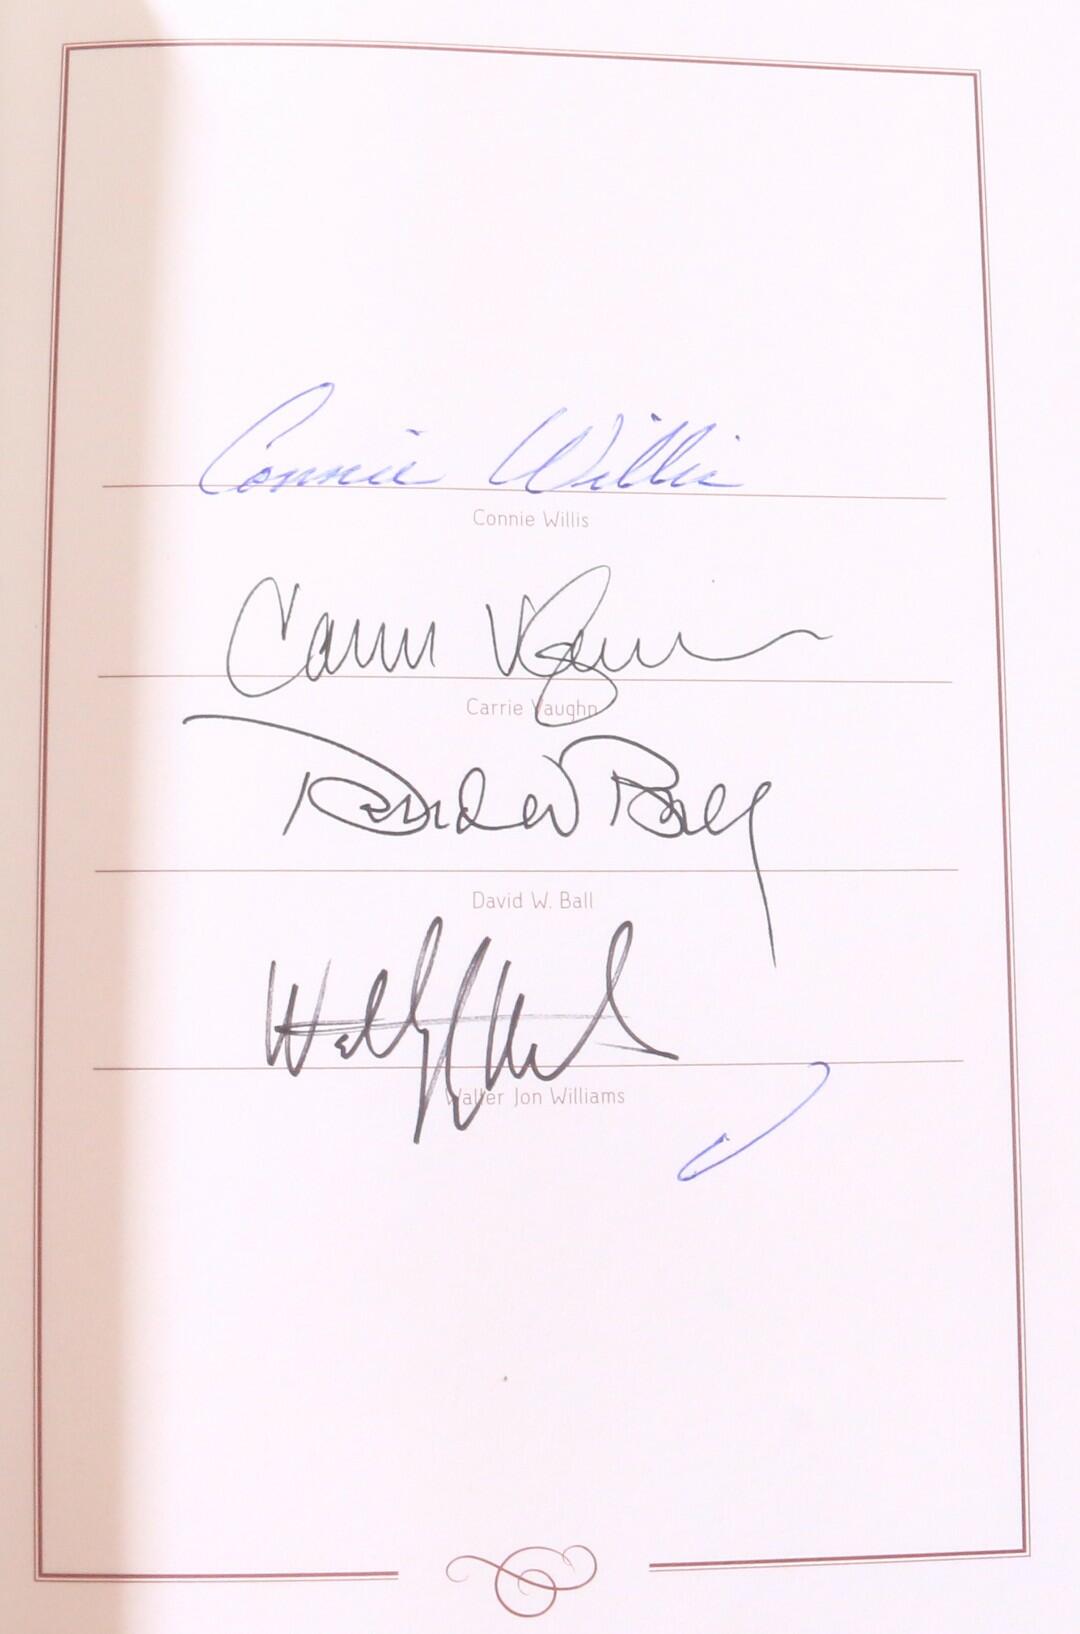 Connie Willis
Connie Willis
Carrie Vaughn
Carrie Vaughn
David W. Ball
David W. Ball
Walter Jon Williams